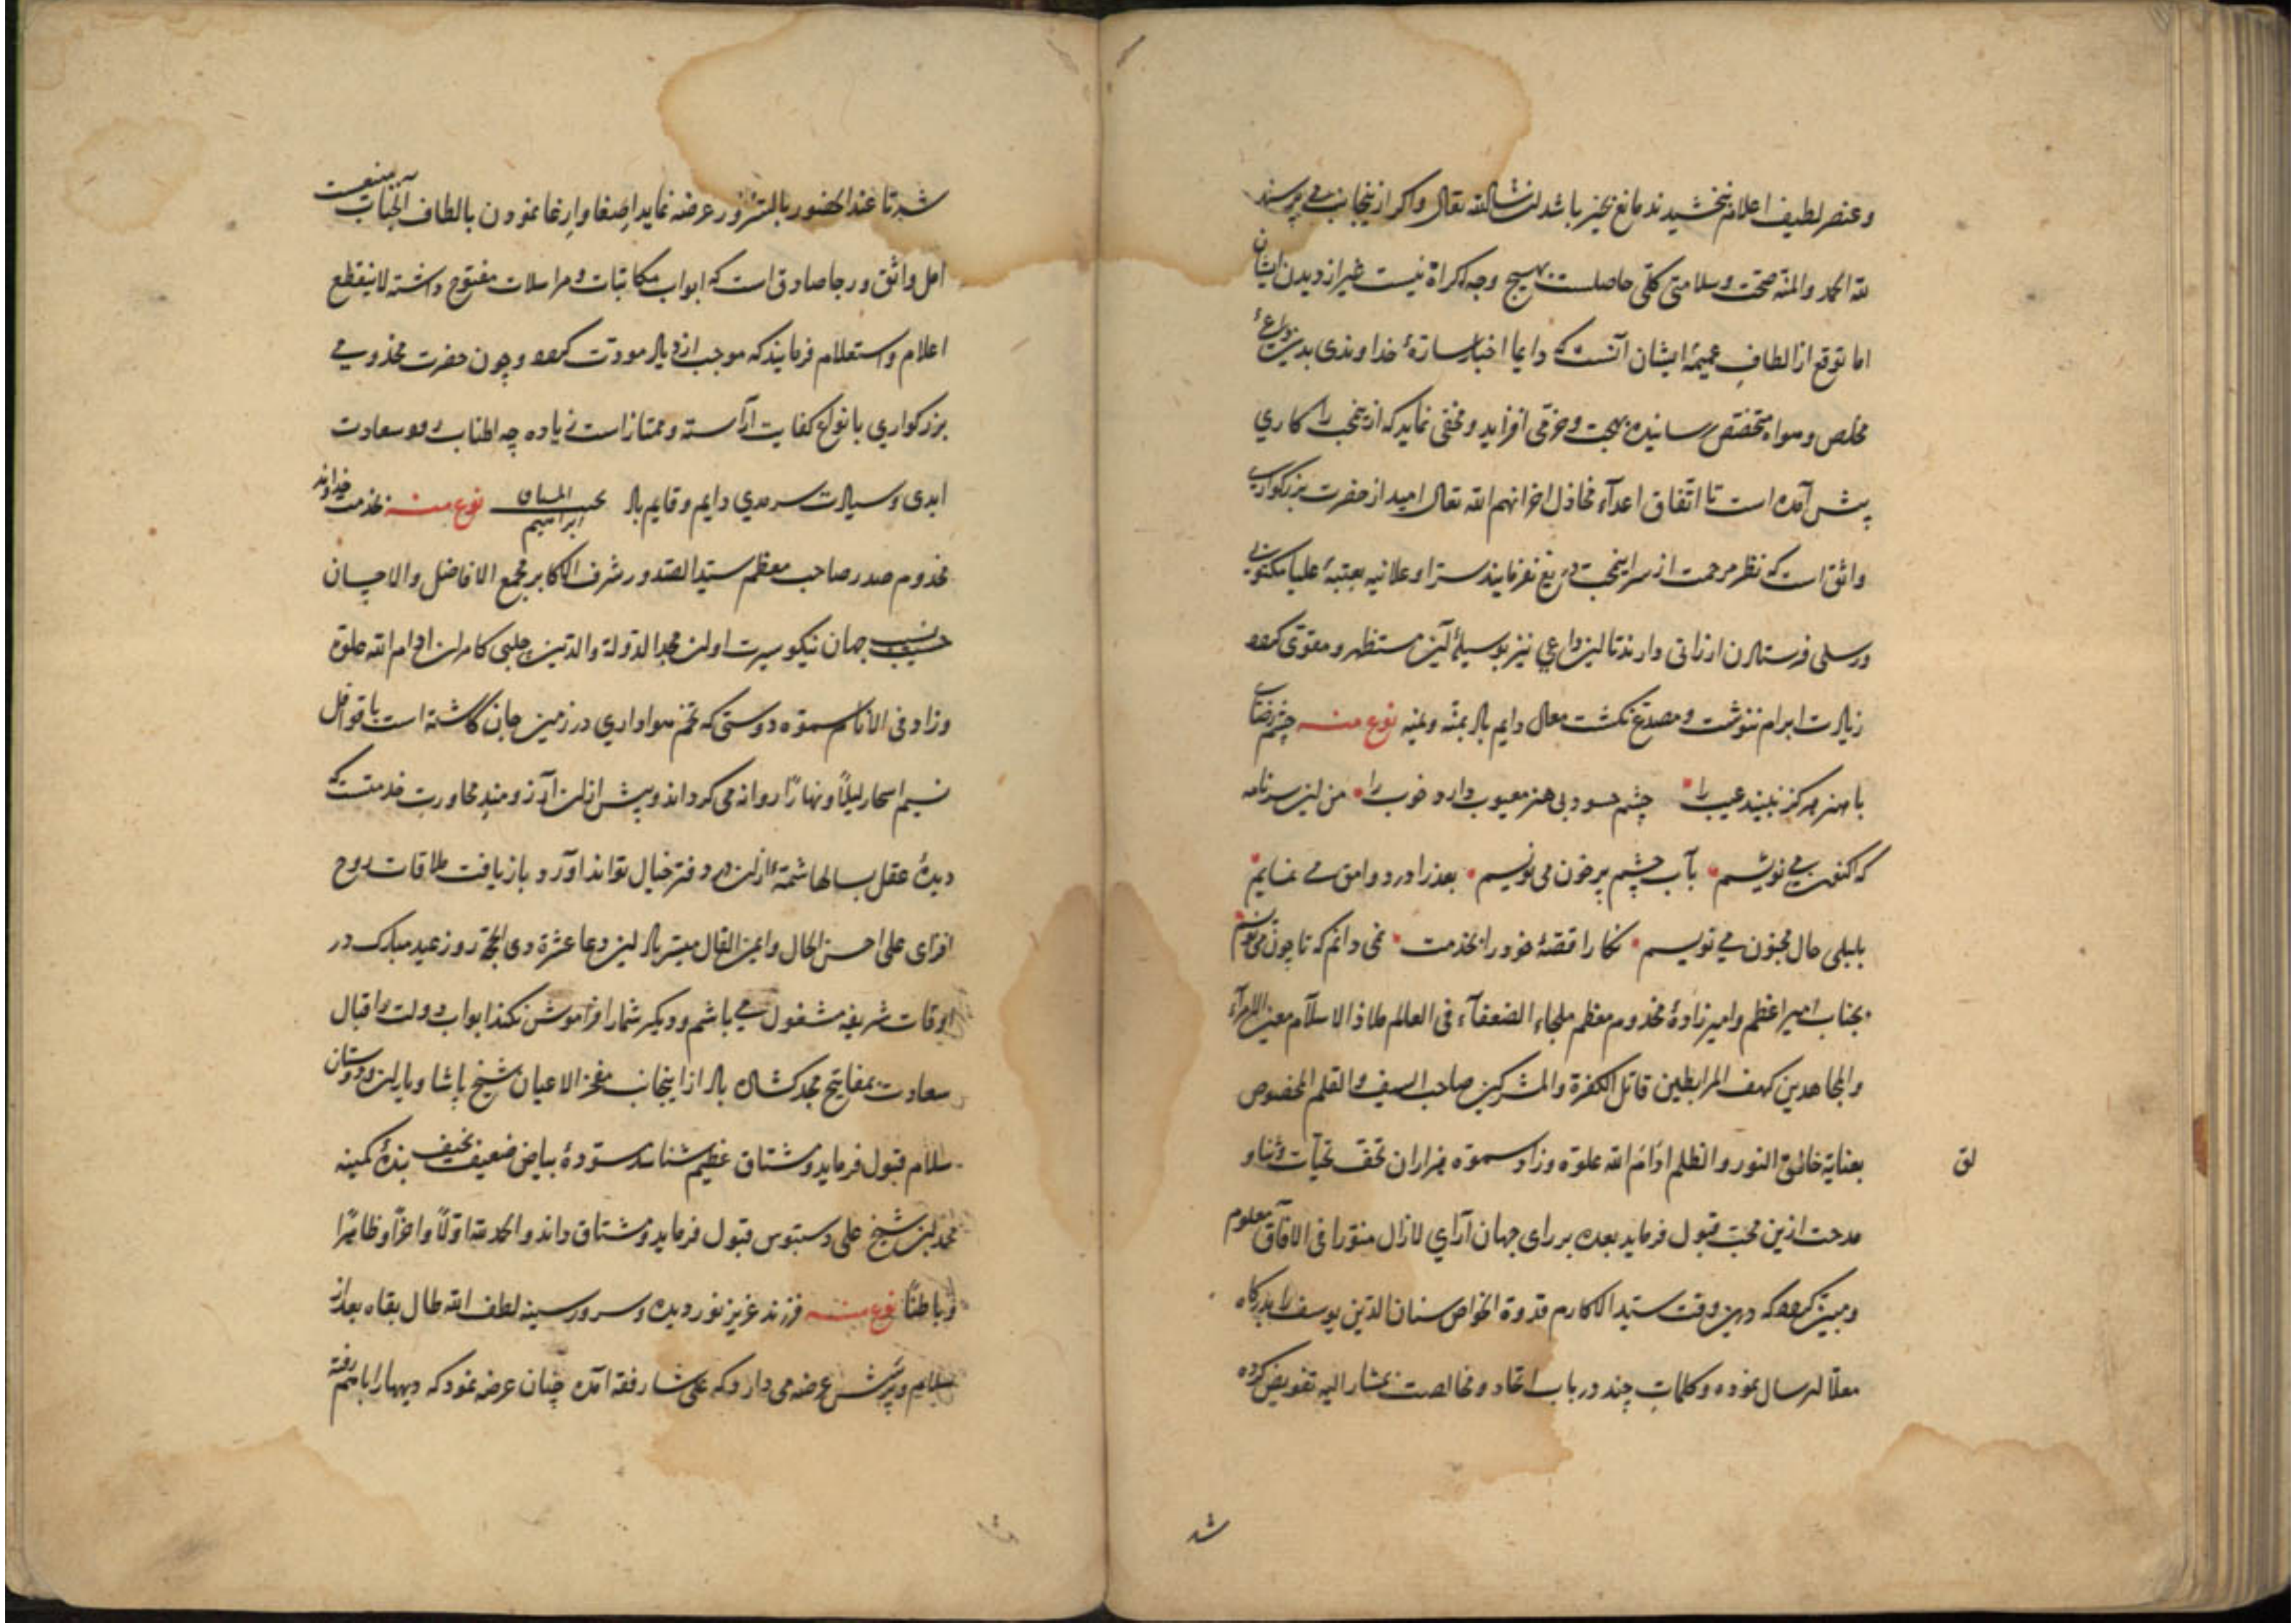 وعنصر لطیف اعلام بخشیدند مانع خیر باشد ان شاالله تعالی واکر ازینجانب می پرسند
لله الحمد والمنه صحت وسلامتی کلی حاصلست بهیچ وجه اکراه نیست غیر از دیدن ایشان
اما توقع از الطاف عمیمهٔ ایشان آنست که دایما اخبار سارهٔ خداوندی بدین داعی
مخلص وهواه متخصص رسانیده بهجت وخرمی افزاید ومخفی نماید که ازینجانب را کاری
پیش آمده است تا اتفاق اعدآء مخاذل اخزانهم الله تعالی امید از حضرت بزرکواری
واثق است که نظر مرحمت از سر اینجانب دریغ نفرمایند سرا وعلانیه بعتبهٔ علیا مکتوبی
ورسلی فرستادن ارزانی دارند تا این داعی نیز بوسیلهٔ آن مستظهر ومقوی کردد
زیادت ابرام ننوشت ومصدع نکشت معالی دایم باد بمنه ویمنه نوع منه چشم رضای
با هنر هرکز نبیند عیب را چشم حسود بی هنر معیوب دارد خوب را من این سرنامه
که اکنون می نویسم بآب چشم پر خون می نویسم بعذرا درد وامق می نمایم
بلیلی حال مجنون می نویسم نکارا قصهٔ خود را بخدمت نمی دانم که تا چون می نویسم
بجناب امیر اعظم وامیرزادهٔ مخدوم معظم ملجاء الضعفآء فی العالم ملاذ الاسلام معین الامرآء
والمجاهدین کهف المرابطین قاتل الکفرة والمشرکین صاحب السیف والقلم المخصوص
بعنایة خالق النور والظلم ادام الله علوه وزاد سموه هزاران تحف تحیآت وثنا و
لق
مدحت ازین محب قبول فرماید بعده بر رای جهان آرای لازال منورا فی الآفاق معلوم
ومبین کردد که درین وقت سید الاکارم قدوة الخواص سنان الدین یوسف را بدرکاه
معلا ارسال نموده وکلمات چند در باب اتحاد ومخالصت بمشار الیه تفویض کرده
شد
شد تا عند الحضور بالمشر ور عرضه نماید اصغا وارعا نمودن بالطاف آنجناب منیعت
امل واثق ورجا صادق است که ابواب مکاتبات ومراسلات مفتوح داشته لاینقطع
اعلام واستعلام فرمایند که موجب ازدیاد مودت کردد وچون حضرت مخدومی
بزرکواری بانواع کفایت آراسته وممتاز است زیاده چه اطناب رود سعادت
ابدی وسیادت سرمدی دایم وقایم باد ابراهیم نوع منه بخدمت خداوند
مخدوم صدر صاحب معظم سید الصدور شرف الاکابر مجمع الافاضل والاحسان
حسیب ونسیب جهان نیکو سیرت اوان مجد الدولة والدین چلبی کامران ادام الله علوه
وزاد فی الانام سموه دوستی که تخم هواداری در زمین جان کاشته است با قوافل
نسیم اسحار لیلاً ونهاراً روانه می کرداند وبیش از ان آرزومند محاورت خدمتست که
دیدهٔ عقل بسالها شمهٔ از ان در دفتر خیال تواند آورد بازیافت ملاقات روح
افزای علی احسن الحال وایمن الفال میسر باد این دعا عشرة ذی الحجة روز عید مبارک در
اوقات شریفه مشغول می باشم ودیکر شمار افراموش نکند ابواب دولت واقبال
سعادت بمفاتیح مجد کشاده باد از اینجانب مفخر الاعیان شیخ پاشا ویاران ودوستان
سلام قبول فرماید ومشتاق عظیم شناسد سوّدهٔ بیاض ضعیف نحیف بندهٔ کمینه
محمد بن شیخ علی دستبوس قبول فرماید ومشتاق داند والحمد لله اولاً واخراً وظاهراً
وباطناً نوع منه فرزند عزیز نور دیده وسرور سینه لطف الله طال بقاه بعد از
سلام وپرسش عرضه می دارد که علی شار فقه آمده چنان عرضه نمود که دیهها را با هم رفته